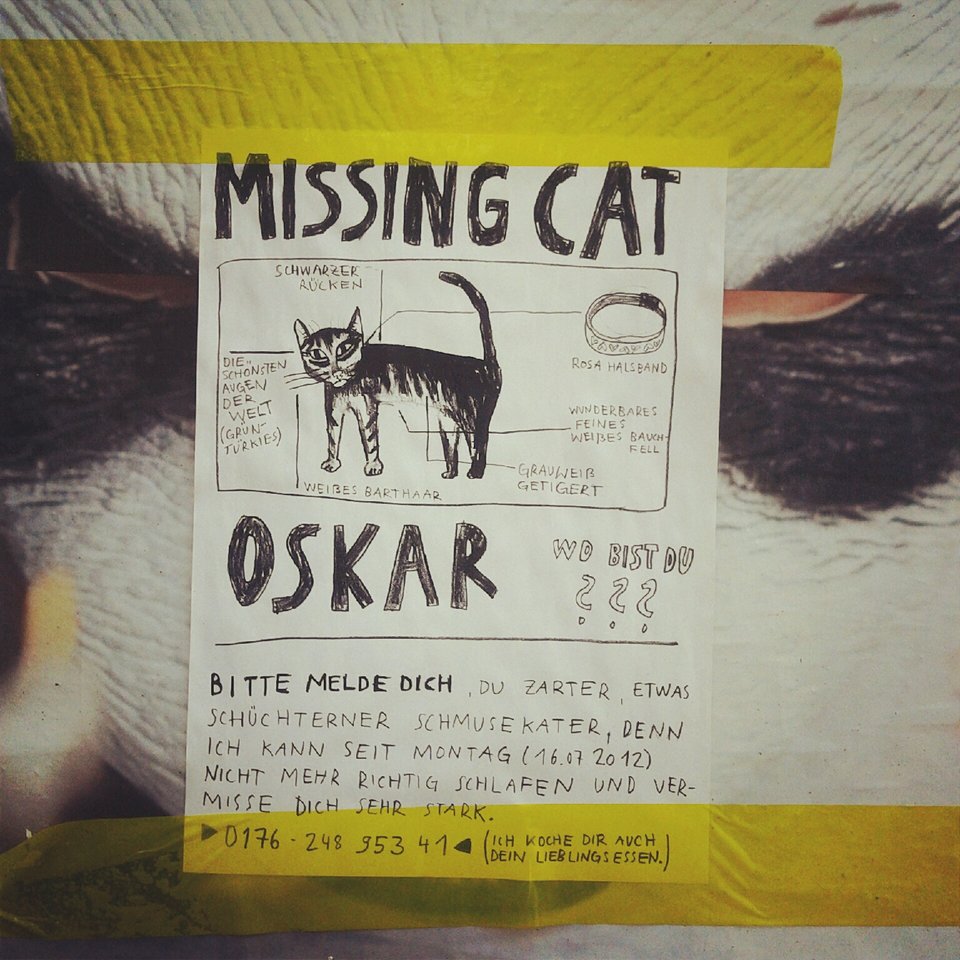 MISSING CAT
SCHWARZER
RÜCKEN
DIE
SCHÖNSTEN
AUGEN
DER
WELT
(GRÜN-
TÜRKIES)
ROSA HALSBAND
WUNDERBARES
FEINES
WEIßES BAUCH-
FELL
GRAUWEIß
GETIGERT
WEIßES BARTHAAR
OSKAR
WO BIST DU
???
BITTE MELDE DICH, DU ZARTER, ETWAS
SCHÜCHTERNER SCHMUSEKATER, DENN
ICH KANN SEIT MONTAG (16.07 2012)
NICHT MEHR RICHTIG SCHLAFEN UND VER-
MISSE DICH SEHR STARK.
0176 - 248 953 41
(ICH KOCHE DIR AUCH
DEIN LIEBLINGSESSEN.)